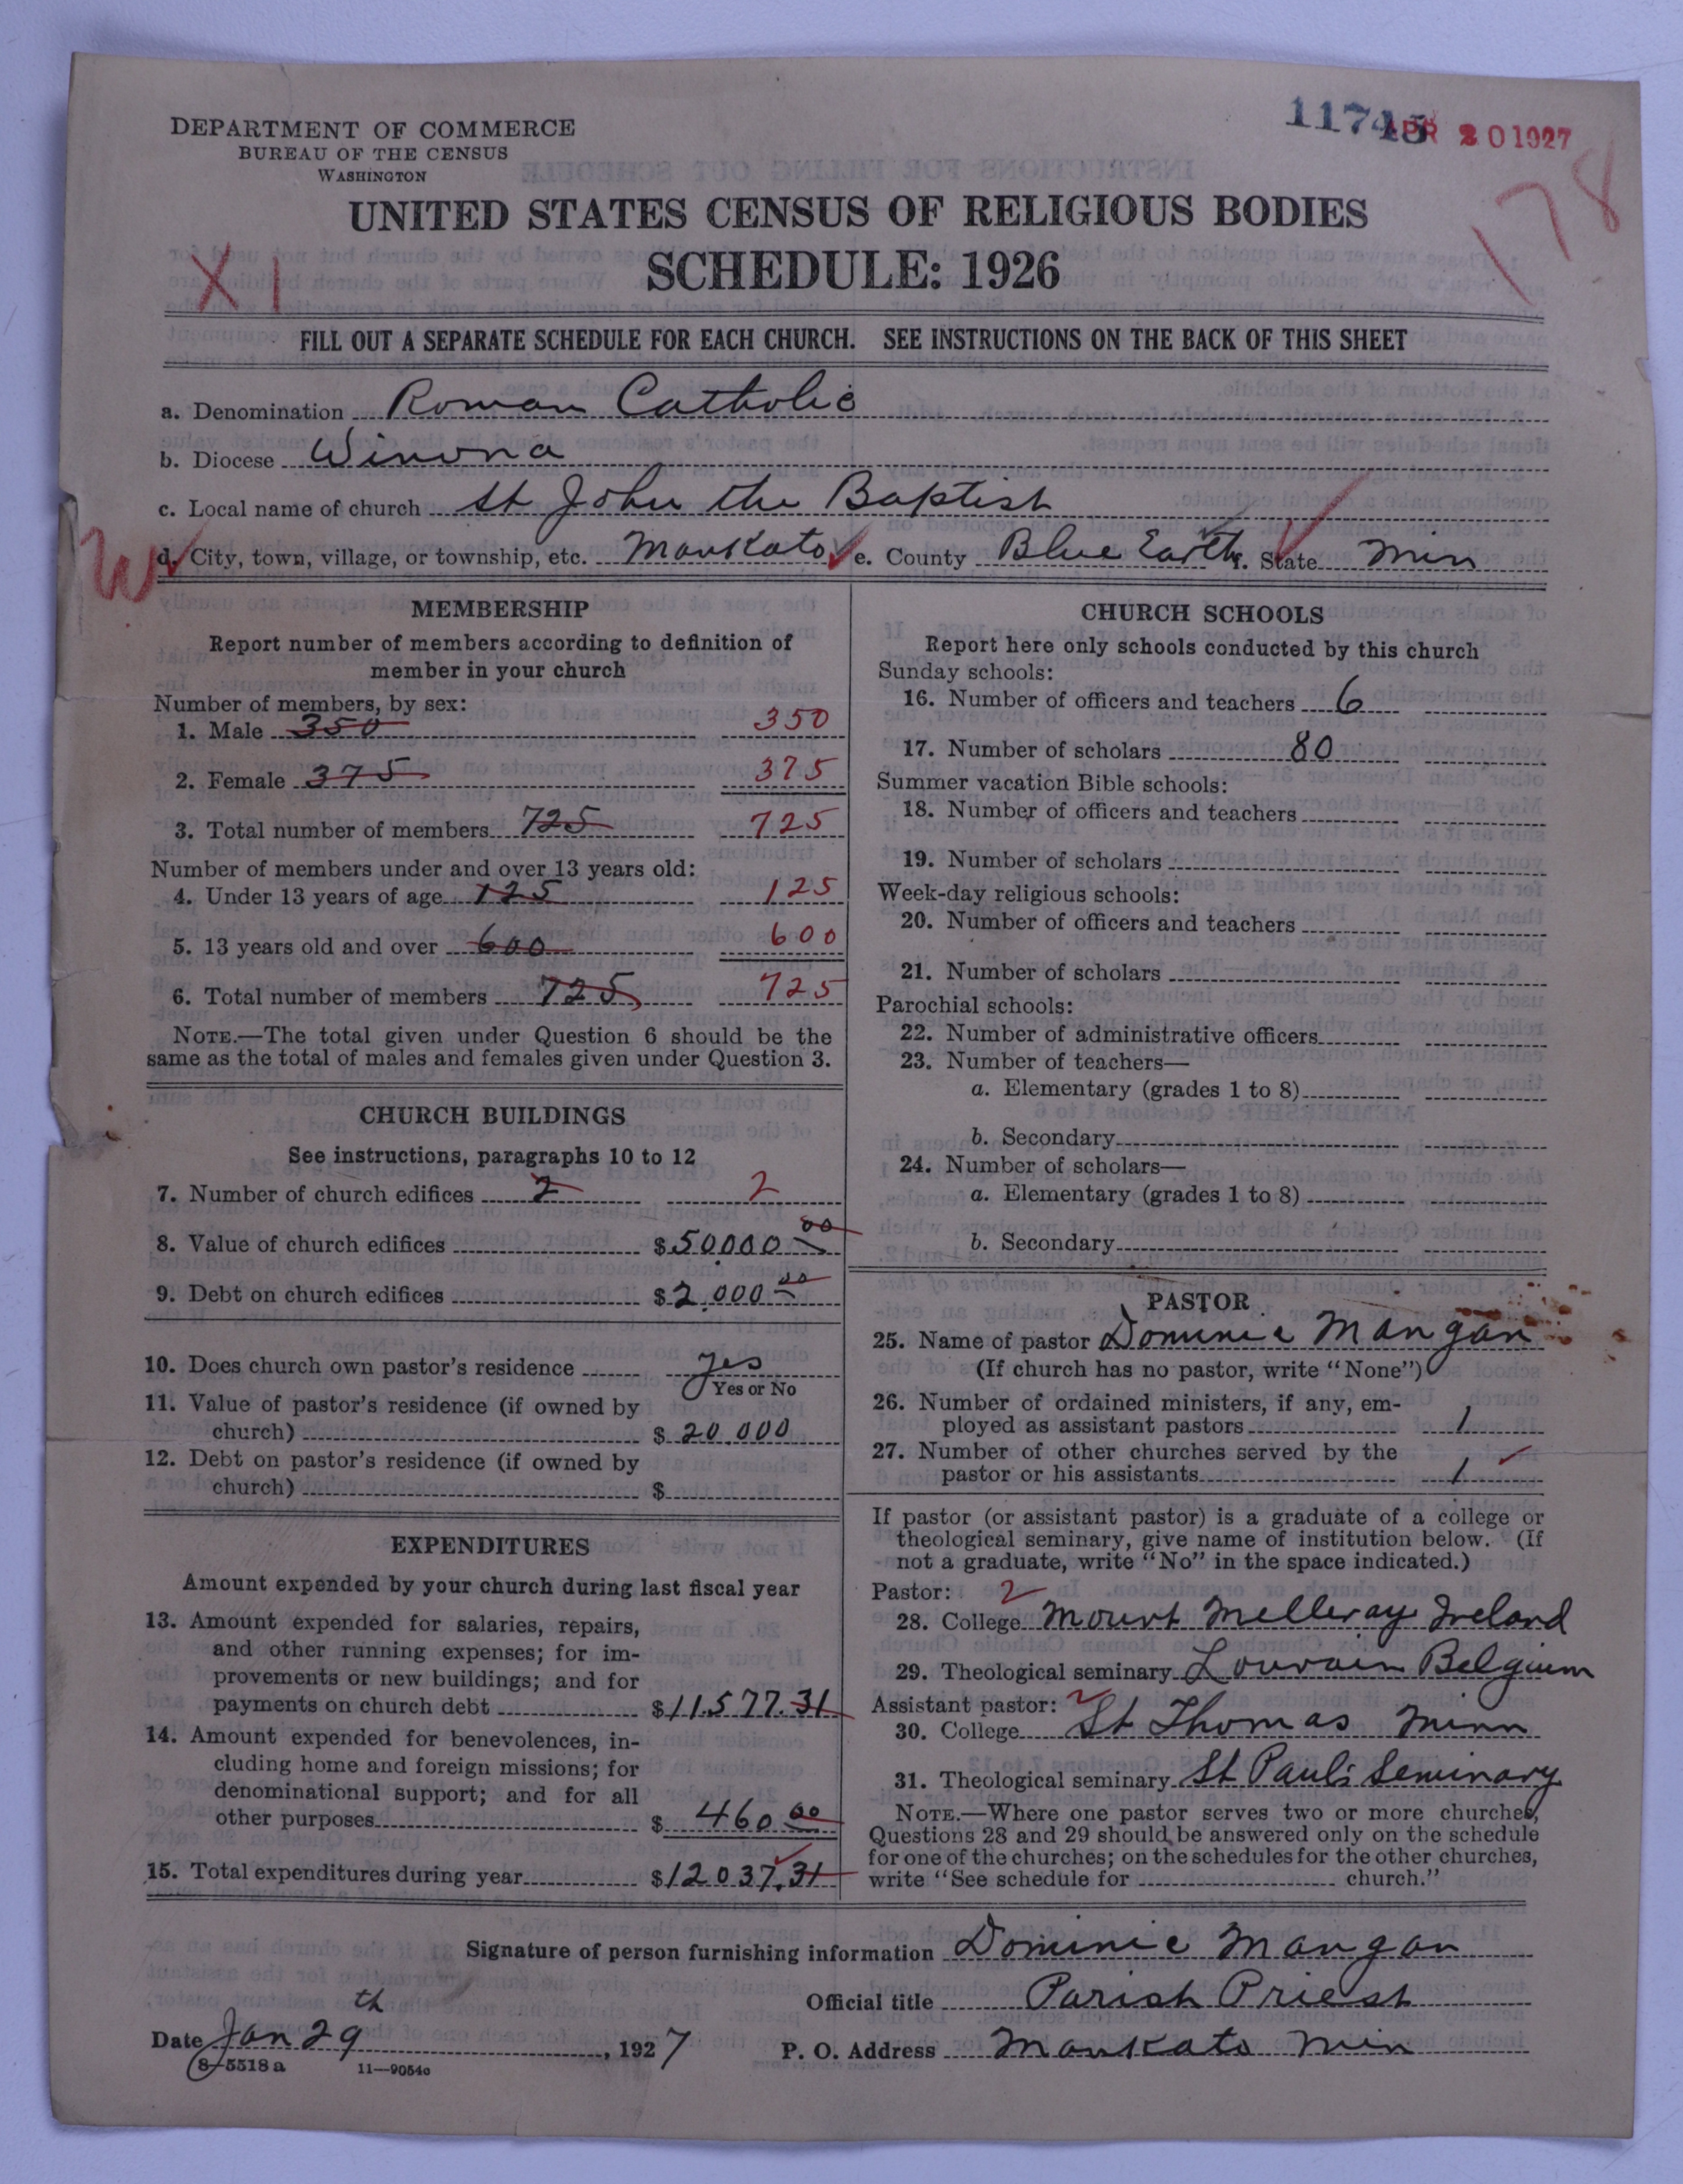 DEPARTMENT OF COMMERCE
BUREAU OF THE CENSUS
WASHINGTON
11745 APR 20 1927
178
UNITED STATES CENSUS OF RELIGIOUS BODIES
SCHEDULE: 1926
X1
FILL OUT A SEPARATE SCHEDULE FOR EACH CHURCH. SEE INSTRUCTIONS ON THE BACK OF THIS SHEET
a. Denomination Roman Catholic
b. Diocese Winona
c. Local name of church St John the Baptist
W d. City, town, village, or township, etc. Mankato e. County Blue Earth f. State Min
MEMBERSHIP
Report number of members according to definition of
member in your church
Number of members, by sex:
1. Male 350 350
2. Female 375 375
3. Total number of members 725 725
Number of members under and over 13 years old:
4. Under 13 years of age 125 125
5. 13 years old and over 600 600
6. Total number of members 725 725
NOTE.—The total given under Question 6 should be the
same as the total of males and females given under Question 3.
CHURCH BUILDINGS
See instructions, paragraphs 10 to 12
7. Number of church edifices 2 2
8. Value of church edifices $ 50000 00
9. Debt on church edifices $ 2,000 00
10. Does church own pastor's residence yes
Yes or No
11. Value of pastor's residence (if owned by
church) $ 20.000
12. Debt on pastor's residence (if owned by
church) $
EXPENDITURES
Amount expended by your church during last fiscal year
13. Amount expended for salaries, repairs,
and other running expenses; for im-
provements or new buildings; and for
payments on church debt $ 11.577.31
14. Amount expended for benevolences, in-
cluding home and foreign missions; for
denominational support; and for all
other purposes $ 460 00
15. Total expenditures during year $ 12037.31
CHURCH SCHOOLS
Report here only schools conducted by this church
Sunday schools:
16. Number of officers and teachers 6
17. Number of scholars 80
Summer vacation Bible schools:
18. Number of officers and teachers
19. Number of scholars
Week-day religious schools:
20. Number of officers and teachers
21. Number of scholars
Parochial schools:
22. Number of administrative officers
23. Number of teachers—
a. Elementary (grades 1 to 8)
b. Secondary
24. Number of scholars—
a. Elementary (grades 1 to 8)
b. Secondary
PASTOR
25. Name of pastor Dominic Mangan
(If church has no pastor, write "None")
26. Number of ordained ministers, if any, em-
ployed as assistant pastors 1
27. Number of other churches served by the
pastor or his assistants 1
If pastor (or assistant pastor) is a graduate of a college or
theological seminary, give name of institution below. (If
not a graduate, write "No" in the space indicated.)
Pastor: 2
28. College Mount Melleray Ireland
29. Theological seminary Louvain Belgium
Assistant pastor: 2
30. College St Thomas Minn
31. Theological seminary St Paul's Seminary
NOTE.—Where one pastor serves two or more churches,
Questions 28 and 29 should be answered only on the schedule
for one of the churches; on the schedules for the other churches,
write "See schedule for church."
Signature of person furnishing information Dominic Mangan
Official title Parish Priest
Date Jan 29th, 1927 P. O. Address Mankato Min
8-5518 a 11—9054c